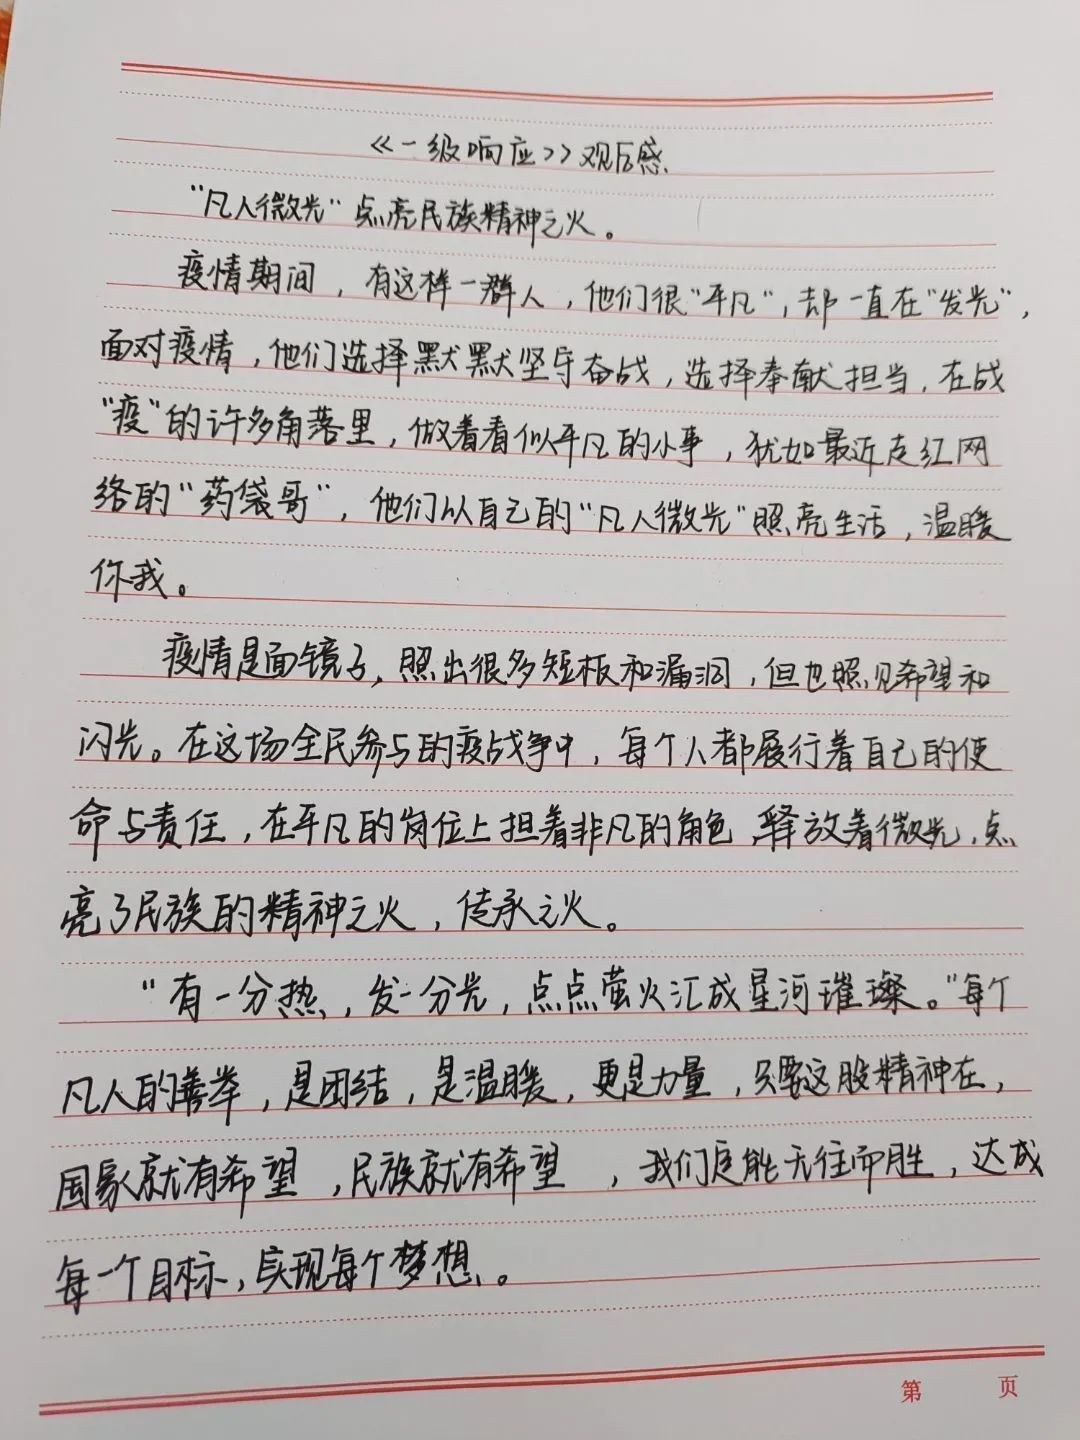 《一级响应》观后感
“凡人微光”点亮民族精神之火。
疫情期间，有这样一群人，他们很“平凡”，却一直在“发光”，
面对疫情，他们选择默默坚守奋战，选择奉献担当，在战
“疫”的许多角落里，做着看似平凡的小事，犹如最近走红网
络的“药袋哥”，他们以自己的“凡人微光”照亮生活，温暖
你我。
疫情是面镜子，照出很多短板和漏洞，但也照见希望和
闪光。在这场全民参与的疫战争中，每个人都履行着自己的使
命与责任，在平凡的岗位上担着非凡的角色，释放着微光，点
亮了民族的精神之火，传承之火。
“有一分热，发一分光，点点萤火汇成星河璀璨。”每个
凡人的善举，是团结，是温暖，更是力量，只要这股精神在，
国家就有希望，民族就有希望，我们定能无往而胜，达成
每一个目标，实现每个梦想。
第 页